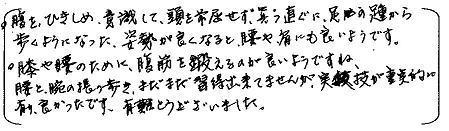 。腹を、ひきしめ、意識して、頭を常屈せず真う直ぐに、足の踵から
歩くようになった、姿勢が良くなると、腰や肩にも良いようです。
。膝や腰のために、腹筋を鍛えるのが良いようですね、
腰と、腕の振り歩き、まだまだ習得出来てませんが、実技が重点的に
有、良かったです、有難とうございました。